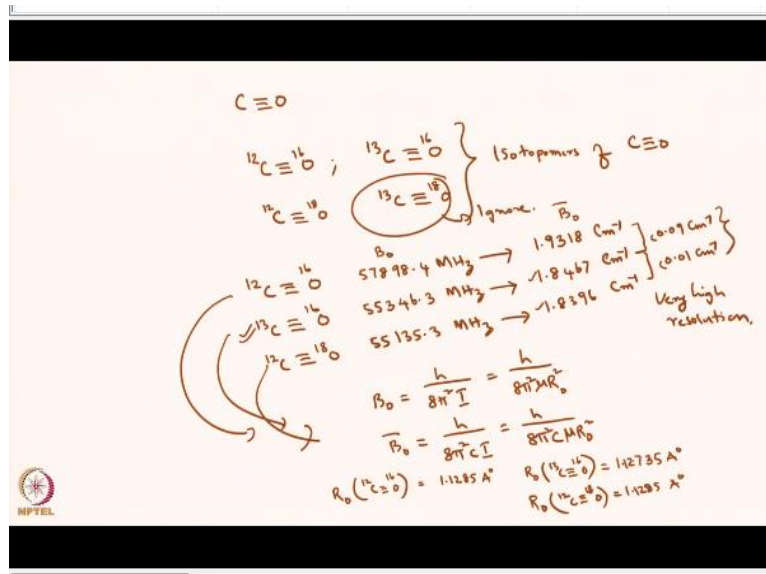 C≡O
¹²C≡¹⁶O ; ¹³C≡¹⁶O } Isotopomers of C≡O
¹²C≡¹⁸O ¹³C≡¹⁸O → Ignore.
B₀ B̄₀
¹²C≡¹⁶O 57898.4 MHz → 1.9318 cm⁻¹ ] <0.09 cm⁻¹
✓¹³C≡¹⁶O 55346.3 MHz → 1.8467 cm⁻¹ ] <0.01 cm⁻¹
¹²C≡¹⁸O 55135.3 MHz → 1.8396 cm⁻¹
Very high
resolution.
B₀ = h / 8π²I = h / 8π²μR₀²
B̄₀ = h / 8π²cI = h / 8π²cμR₀²
R₀(¹²C≡¹⁶O) = 1.1285 A° R₀(¹³C≡¹⁶O) = 1.12735 A°
R₀(¹²C≡¹⁸O) = 1.1285 A°
NPTEL